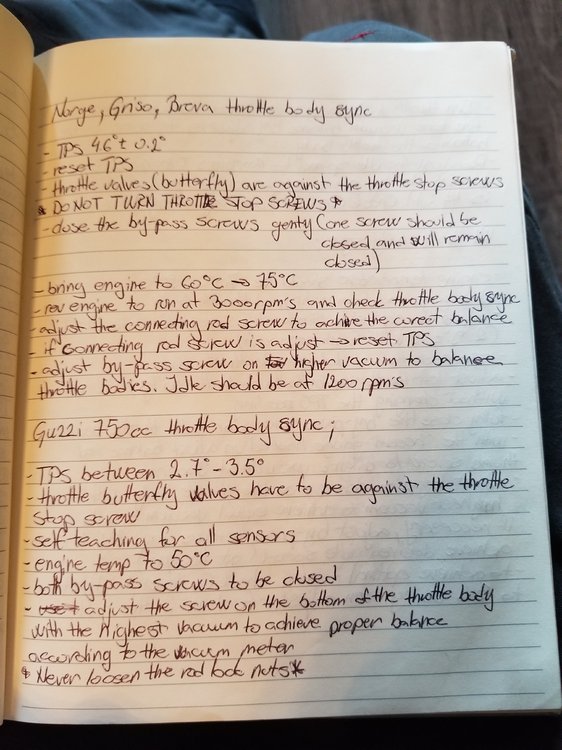 Norge, Griso, Breva throttle body sync
- TPS 4.6° ± 0.2°
- reset TPS
- throttle valves (butterfly) are against the throttle stop screws
* DO NOT TURN THROTTLE STOP SCREWS *
- close the by-pass screws genty (one screw should be
closed and will remain
closed)
- bring engine to 60°C → 75°C
- rev engine to run at 3000rpm's and check throttle body sync
- adjust the connecting rod screw to achive the corect balance
- if connecting rod screw is adjust → reset TPS
- adjust by-pass screw on higher vacuum to balance
throttle bodies. Idle should be at 1200 rpm's
Guzzi 750cc throttle body sync;
- TPS between 2.7° - 3.5°
- throttle butterfly valves have to be against the throttle
stop screw
- self teaching for all sensors
- engine temp to 50°C
- both by-pass screws to be closed
- adjust the screw on the bottom of the throttle body
with the highest vacuum to achieve proper balance
according to the vacuum meter
* Never loosen the rod lock nuts *